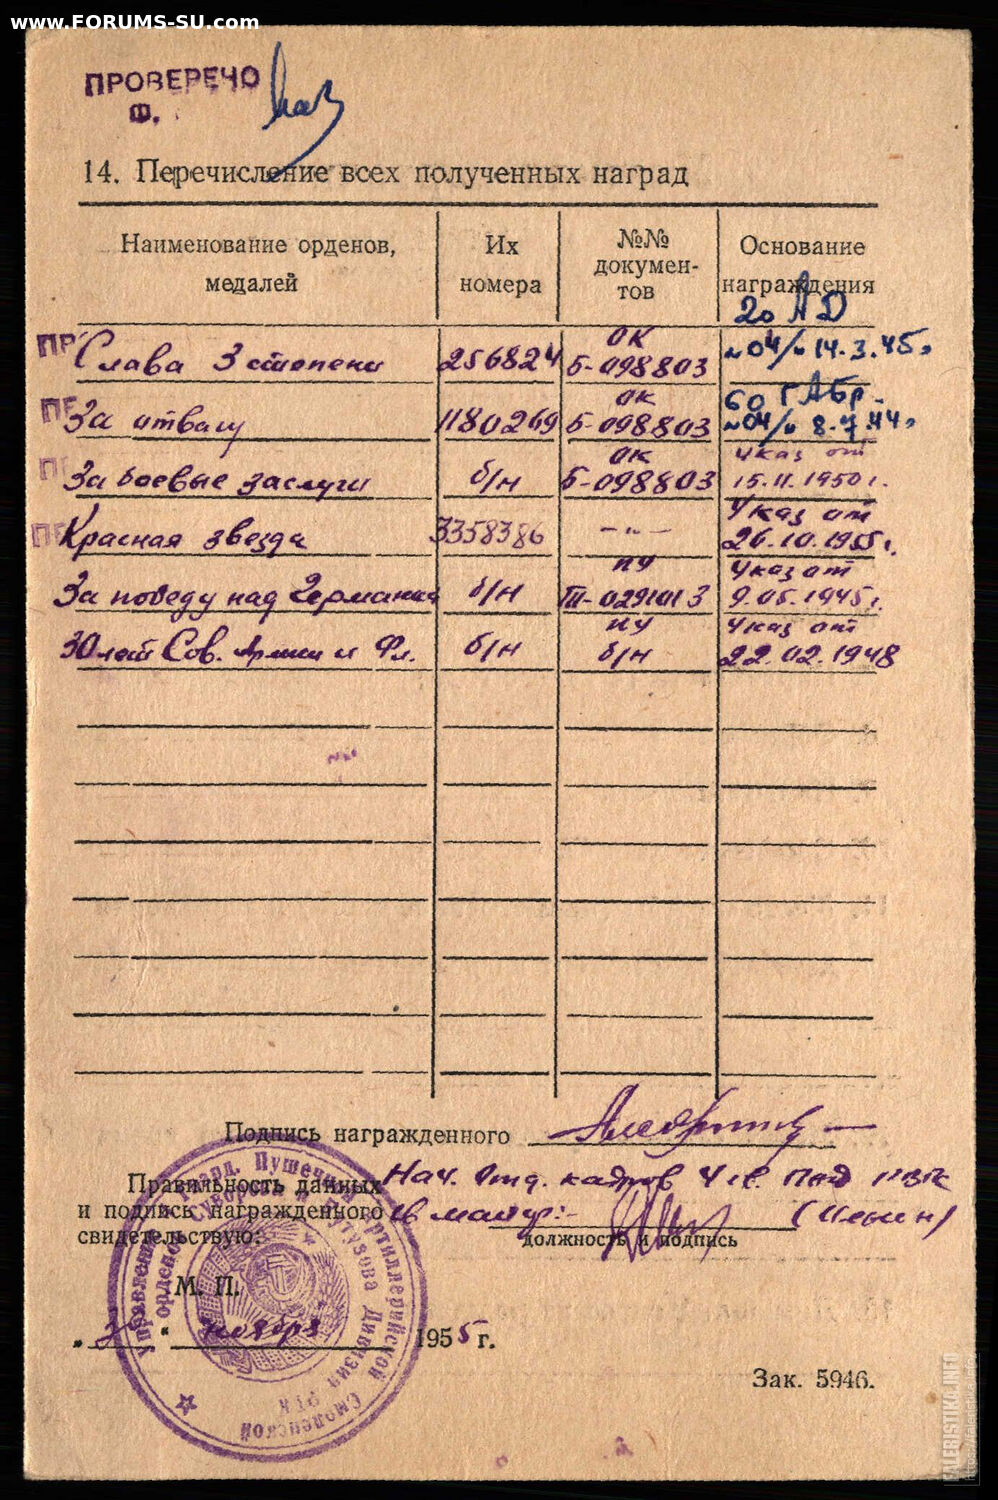 www.FORUMS-SU.com
ПРОВЕРЕНО
Ф.
14. Перечисление всех полученных наград
Наименование орденов, медалей
Их номера
№№ докумен-тов
Основание награждения
20 АД
Слава 3 степени 256824 ОК Б-098803 №04/н 14.3.45г
За отвагу 1180269 ОК Б-098803 60 ГАБр. №04/н 8.7.44г
За боевые заслуги б/н ОК Б-098803 Указ от 15.11.1950г.
Красная звезда 3358386 —"— Указ от 26.10.1955г.
За победу над Германией б/н ПУ Ш-0291013 Указ от 9.05.1945г.
30 лет Сов. Армии и Фл. б/н ПУ б/н Указ от 22.02.1948
Подпись награжденного
Правильность данных
и подпись награжденного
свидетельствую:
Нач. Отд. кадров
майор:- (Ильин)
должность и подпись
М. П.
ноября 1955 г.
Управление Гвард. Пушечной Артиллерийской Смоленской
орденов Суворова и Кутузова Дивизии РГК
Зак. 5946.
FALERISTIKA.INFO